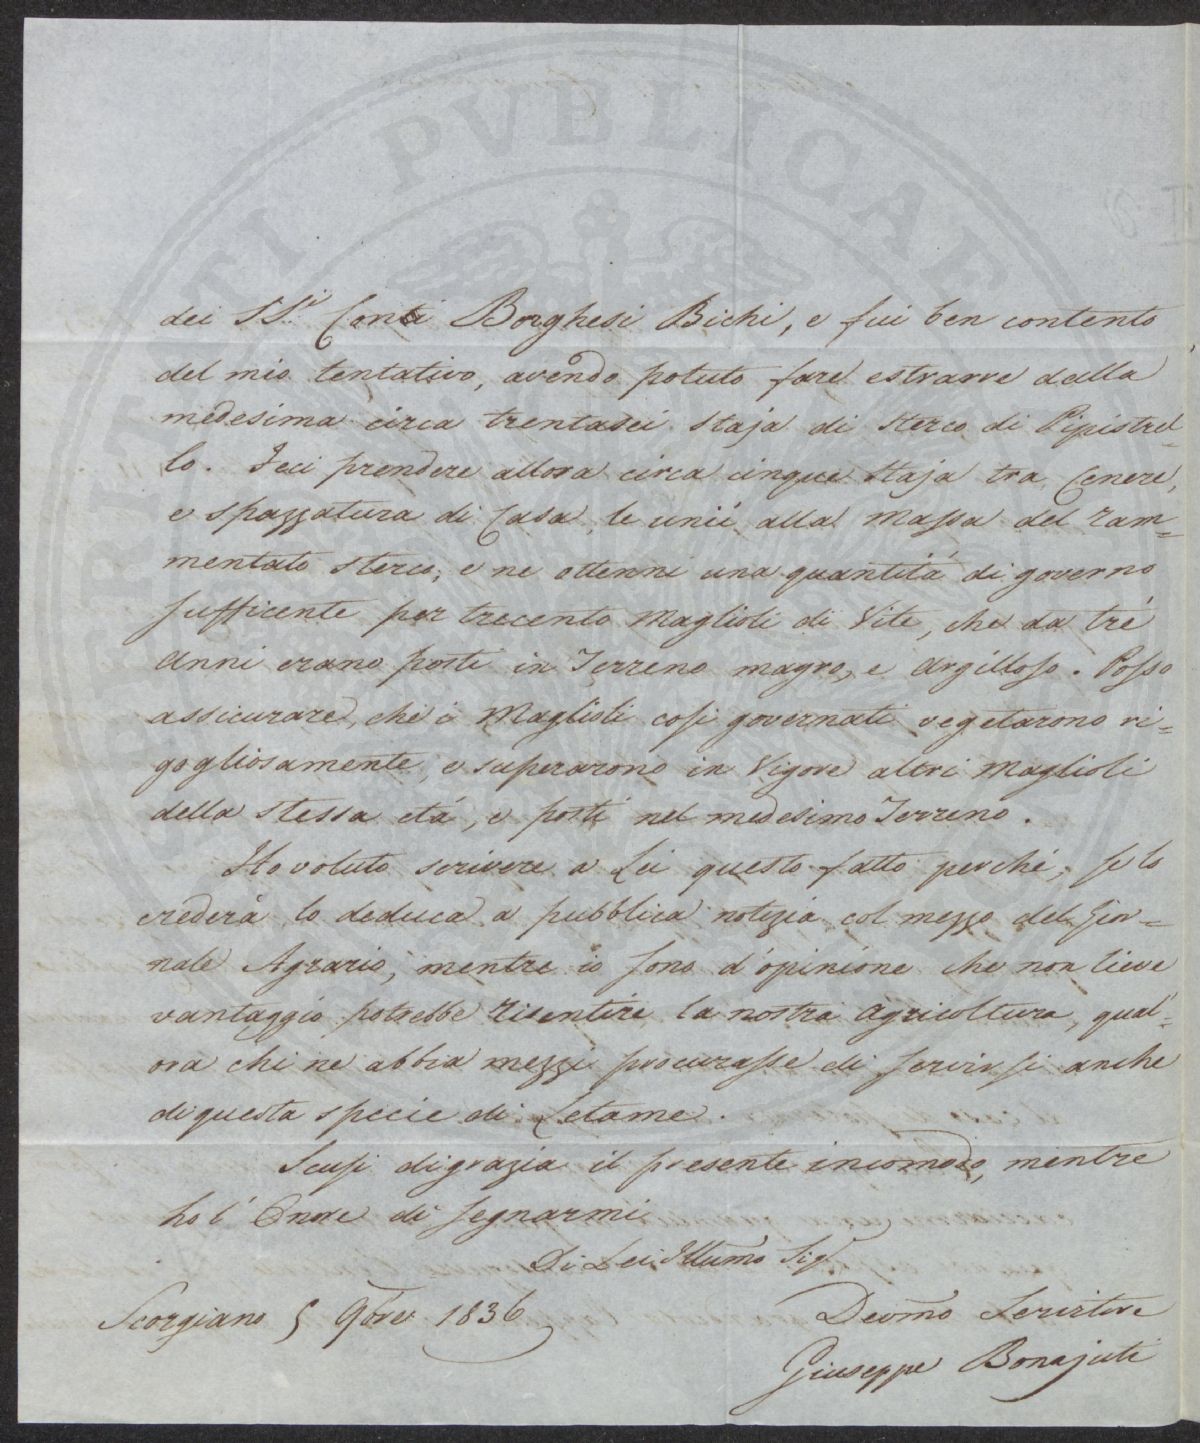 PVBLICAE
dei SS.ri Conti Borghesi Bichi, e fui ben contento
del mio tentativo, avendo potuto fare estrarre dalla
medesima circa trentasei staja di sterco di Pipistrel=
lo. Feci prendere allora circa cinque staja tra Cenere,
e spazzatura di Casa, le unii alla massa del ram=
mentato sterco, e ne ottenni una quantità di governo
sufficente per trecento Maglioli di Vite, che da tré
Anni erano posti in Terreno magro, e Argilloso. Posso
assicurare, che i Maglioli così governati vegetarono ri=
gogliosamente, e superarono in Vigore altri Maglioli
della stessa età, e posti nel medesimo Terreno.
Ho voluto scrivere a Lei questo fatto perché, se lo
crederà lo deduca a pubblica notizia col mezzo del Gior=
nale Agrario, mentre io sono d'opinione che non lieve
vantaggio potrebbe risentire la nostra Agricoltura, qual=
ora chi ne abbia mezzi procurasse di servirsi anche
di questa specie di Letame.
Scusi di grazia il presente incomodo, mentre
ho l'Onore di segnarmi
Di Lei Illumo Sigr
Scorgiano 5 9bre 1836
Devmo Servitore
Giuseppe Bonajuti